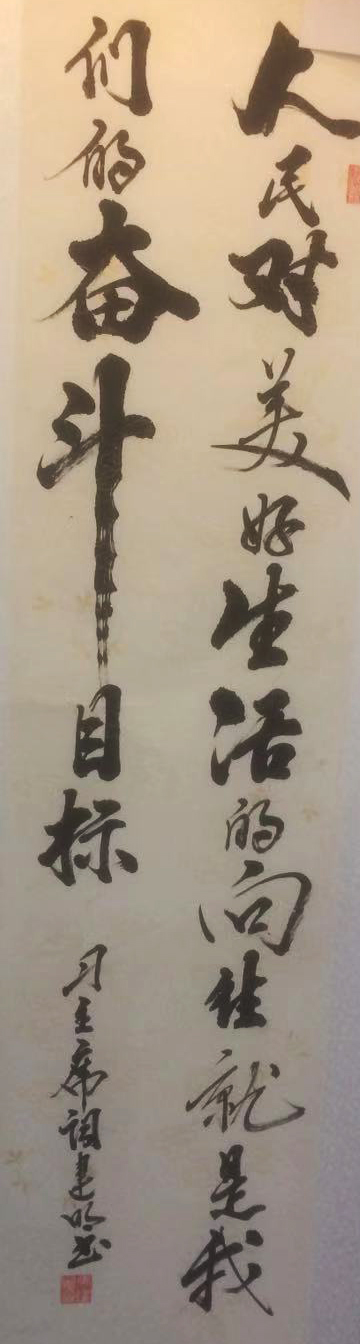 人民对美好生活的向往就是我
们的奋斗目标
习主席词建明书